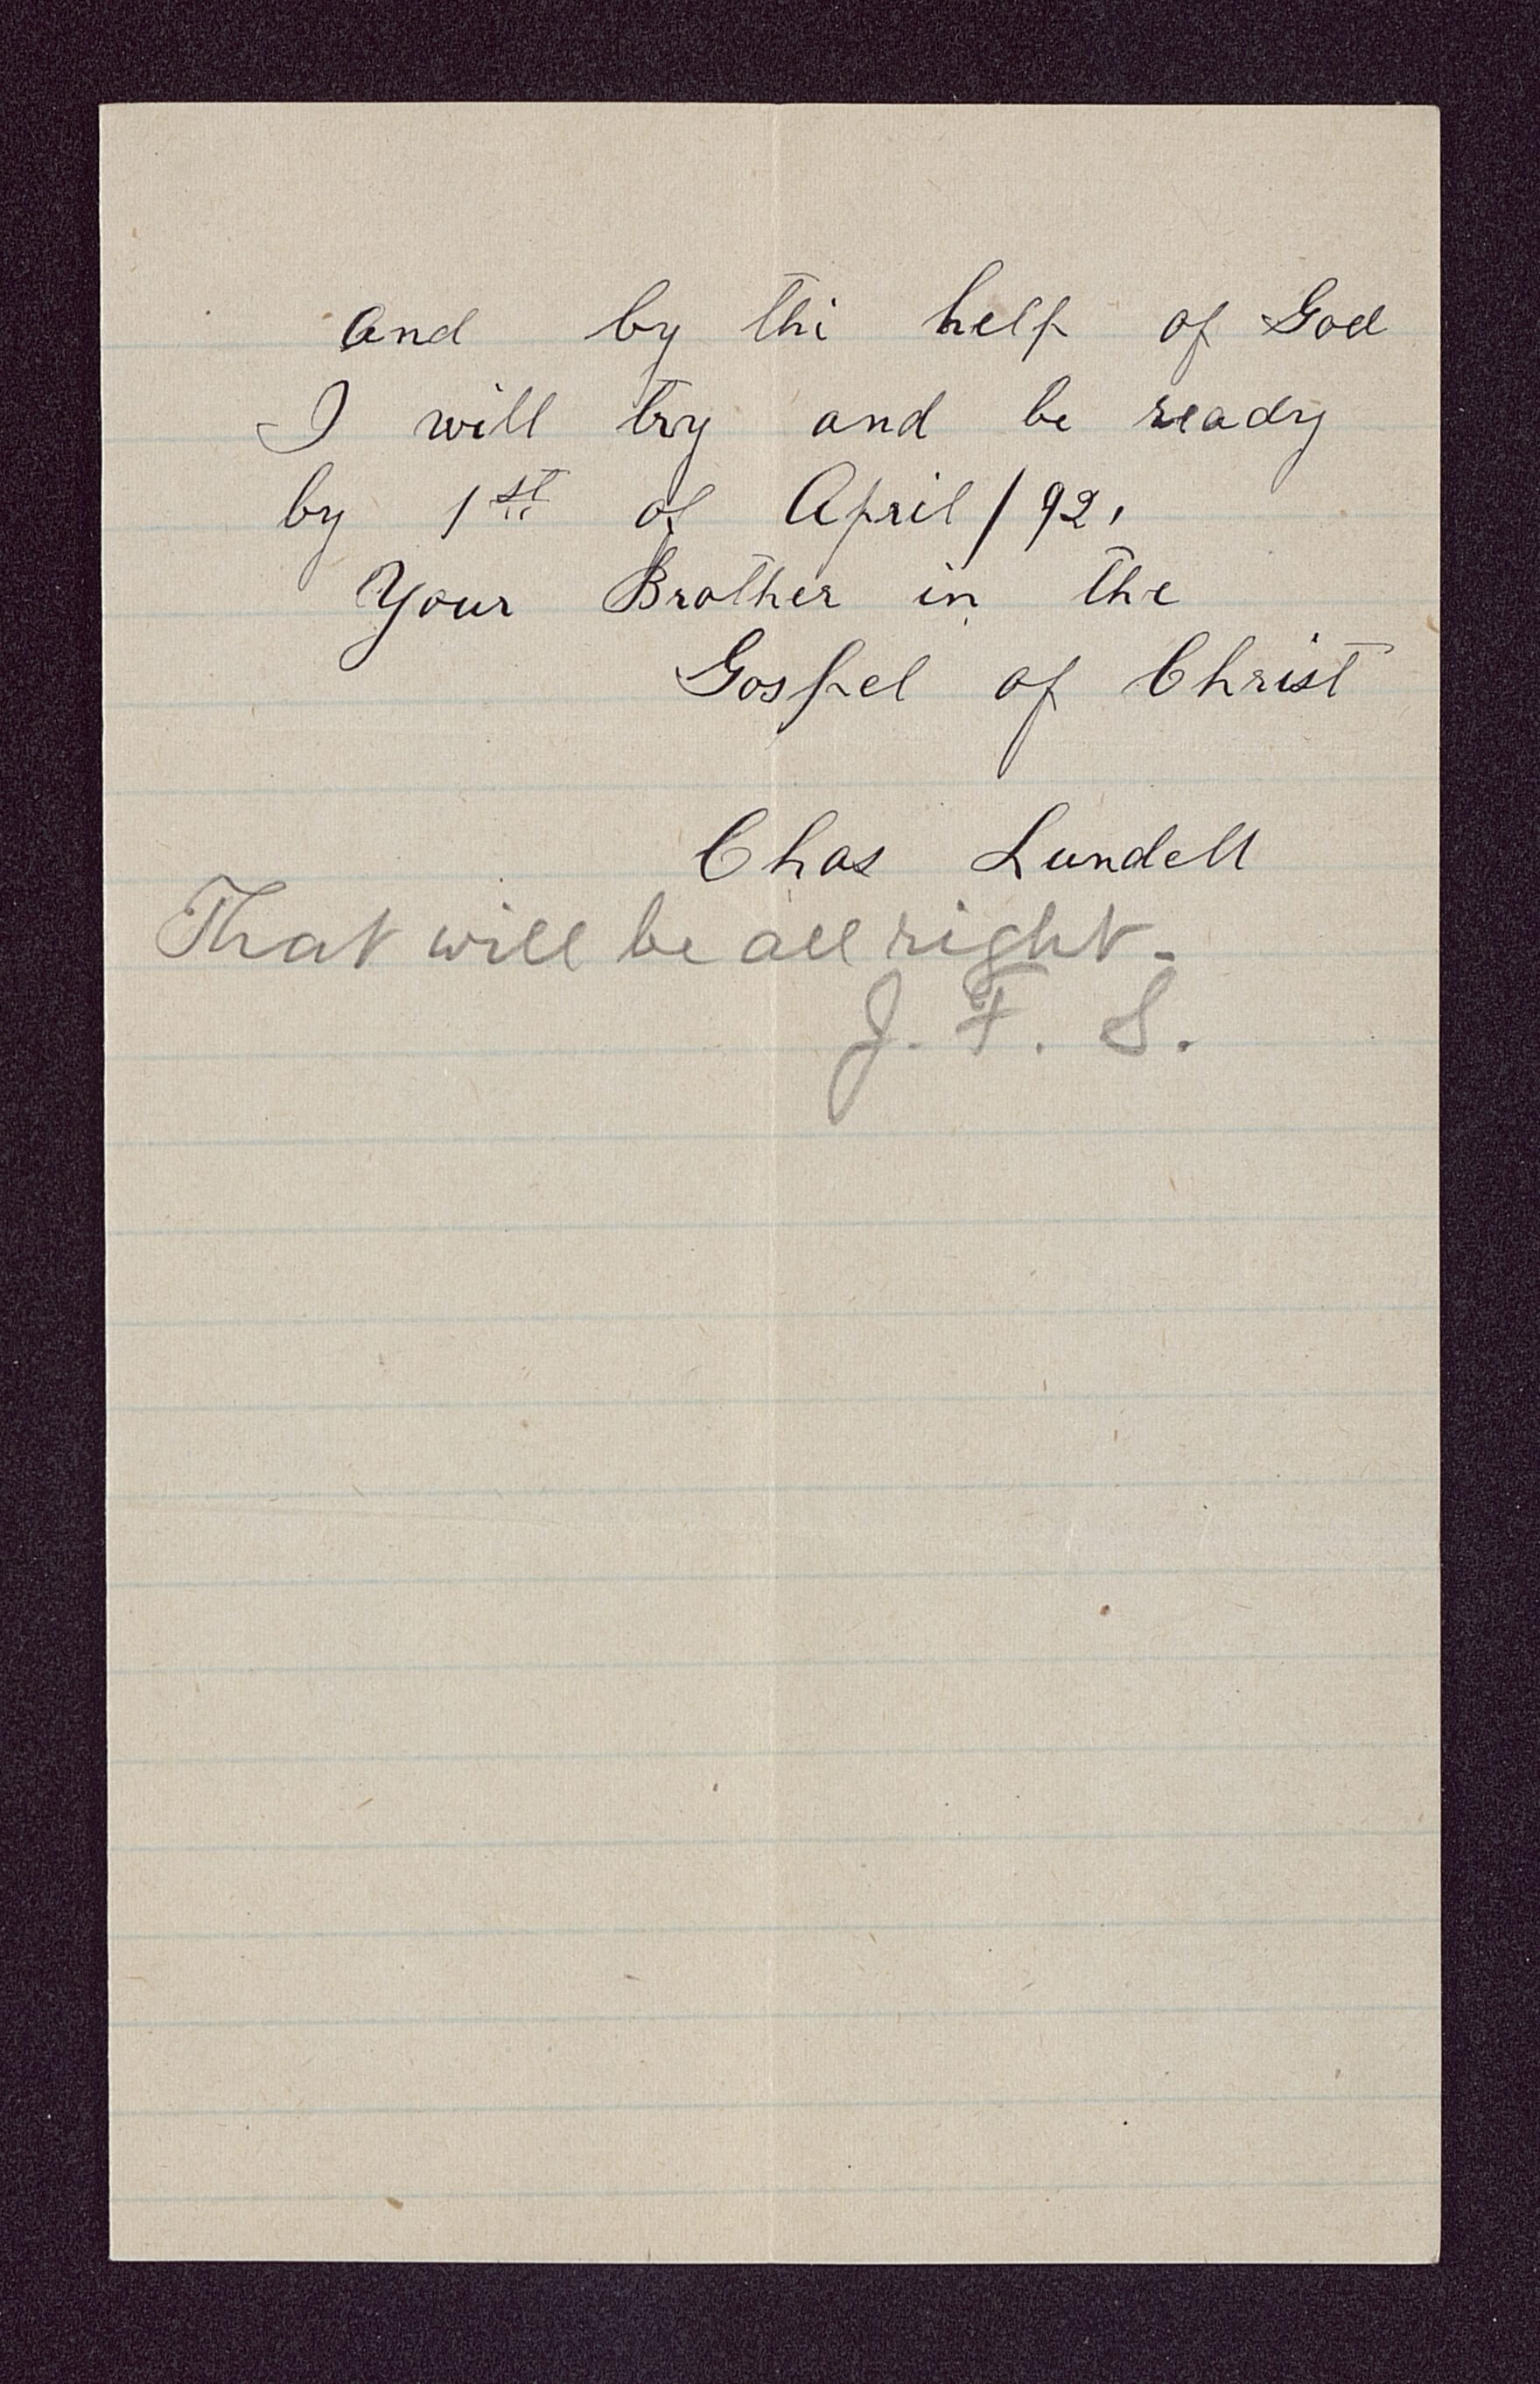 and by the help of God
I will try and be ready
by 1st of April / 92,
Your Brother in the
Gospel of Christ
Chas Lundell
That will be all right.
J. F. S.